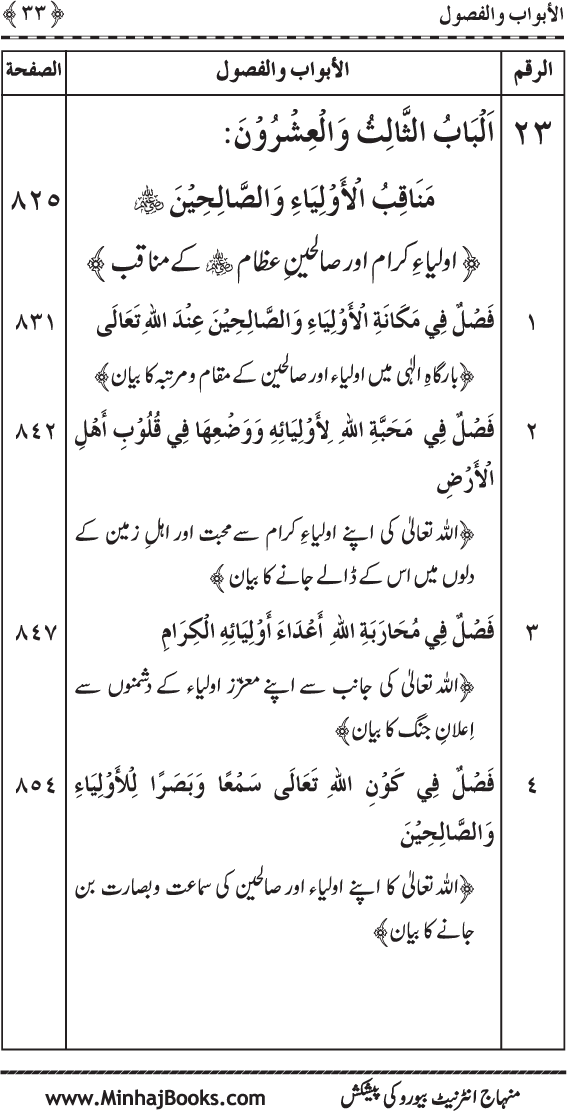 الأبواب والفصول ﴿٣٣﴾
الرقم الأبواب والفصول الصفحة
٢٣ اَلْبَابُ الثَّالِثُ وَالْعِشْرُوْنَ:
مَنَاقِبُ الْأَوْلِيَاءِ وَالصَّالِحِيْنَ ٨٢٥
﴿ اولیاءِ کرام اور صالحینِ عظام کے مناقب ﴾
١ فَصْلٌ فِي مَكَانَةِ الْأَوْلِيَاءِ وَالصَّالِحِيْنَ عِنْدَ اللهِ تَعَالَى ٨٣١
﴿بارگاہِ الٰہی میں اولیاء اور صالحین کے مقام و مرتبہ کا بیان﴾
٢ فَصْلٌ فِي مَحَبَّةِ اللهِ لِأَوْلِيَائِهِ وَوَضْعِهَا فِي قُلُوْبِ أَهْلِ ٨٤٢
الْأَرْضِ
﴿اللہ تعالیٰ کی اپنے اولیاءِ کرام سے محبت اور اہلِ زمین کے
دلوں میں اس کے ڈالے جانے کا بیان ﴾
٣ فَصْلٌ فِي مُحَارَبَةِ اللهِ أَعْدَاءَ أَوْلِيَائِهِ الْكِرَامِ ٨٤٧
﴿اللہ تعالیٰ کی جانب سے اپنے معزّز اولیاء کے دشمنوں سے
اِعلانِ جنگ کا بیان﴾
٤ فَصْلٌ فِي كَوْنِ اللهِ تَعَالَى سَمْعًا وَبَصَرًا لِلْأَوْلِيَاءِ ٨٥٤
وَالصَّالِحِيْنَ
﴿اللہ تعالیٰ کا اپنے اولیاء اور صالحین کی سماعت و بصارت بن
جانے کا بیان﴾
منہاج انٹرنیٹ بیورو کی پیشکش www.MinhajBooks.com